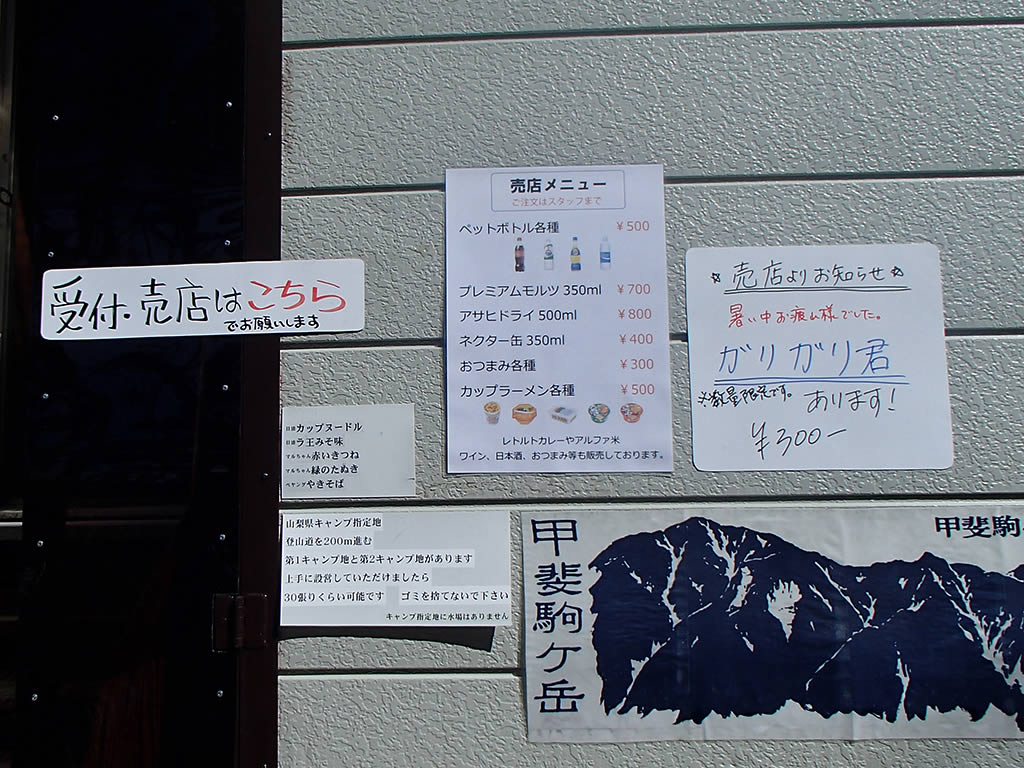 受付・売店はこちら
でお願いします
売店メニュー
ご注文はスタッフまで
ペットボトル各種 ￥500
プレミアムモルツ 350ml ￥700
アサヒドライ 500ml ￥800
ネクター缶 350ml ￥400
おつまみ各種 ￥300
カップラーメン各種 ￥500
レトルトカレーやアルファ米
ワイン、日本酒、おつまみ等も販売しております。
☆売店よりお知らせ☆
暑い中お疲れ様でした。
ガリガリ君
※数量限定です。 あります!
¥300-
日清カップヌードル
日清ラ王みそ味
マルちゃん赤いきつね
マルちゃん緑のたぬき
ペヤングやきそば
山梨県キャンプ指定地
登山道を200m進む
第1キャンプ地と第2キャンプ地があります
上手に設営していただけましたら
30張りくらい可能です ゴミを捨てないで下さい
キャンプ指定地に水場はありません
甲斐駒ケ岳
甲斐駒